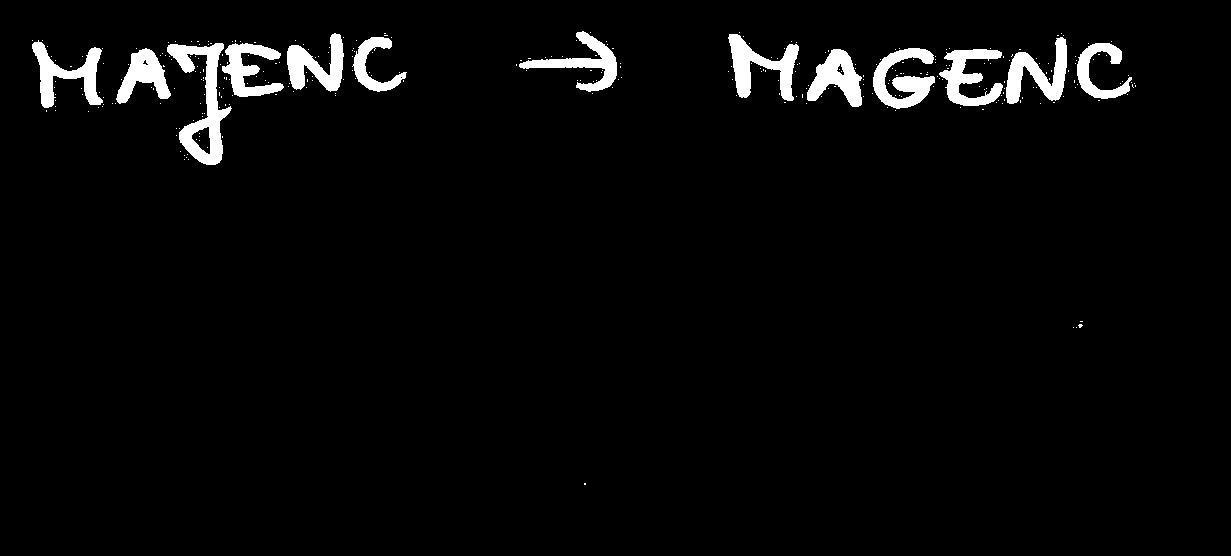 MAJENC → MAGENC